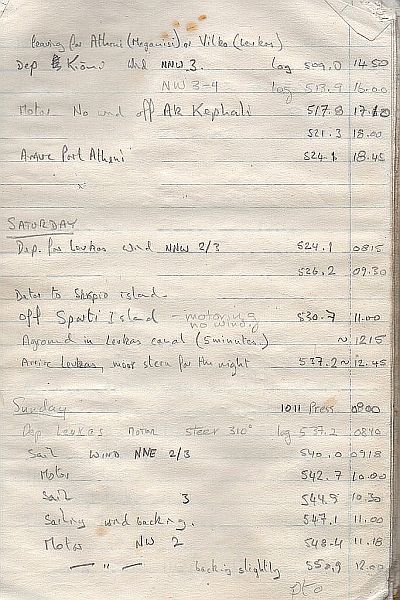 leaving for Atheni (Meganisi) or Vliko (Leukas)
Dep Kioni Wind NNW 3. log 509.0 14.50
NW 3-4 log 513.9 16.00
Motor No wind off Ak Kephali 517.8 17.10
521.3 18.00
Arrive Port Atheni 524.1 18.45
SATURDAY
Dep. for Leukas wind NNW 2/3 524.1 0815
526.2 09.30
Detor to Skopio island.
off Sparti Island - motoring no wind. 530.7 11.00
Aground in Leukas canal (5 minutes.) ~ 1215
Arrive Leukas, moor stern for the night 537.2 ~ 12.45
Sunday 1011 Press. 0800
Dep Leukas Motor Steer 310° log 537.2 0840
Sail WIND NNE 2/3 540.0 0918
Motor 542.7 10.00
Sail 3 544.9 10.30
Sailing wind backing. 547.1 11.00
Motor NW 2 548.4 11.18
— " — backing slightly 550.9 12.00
PTO